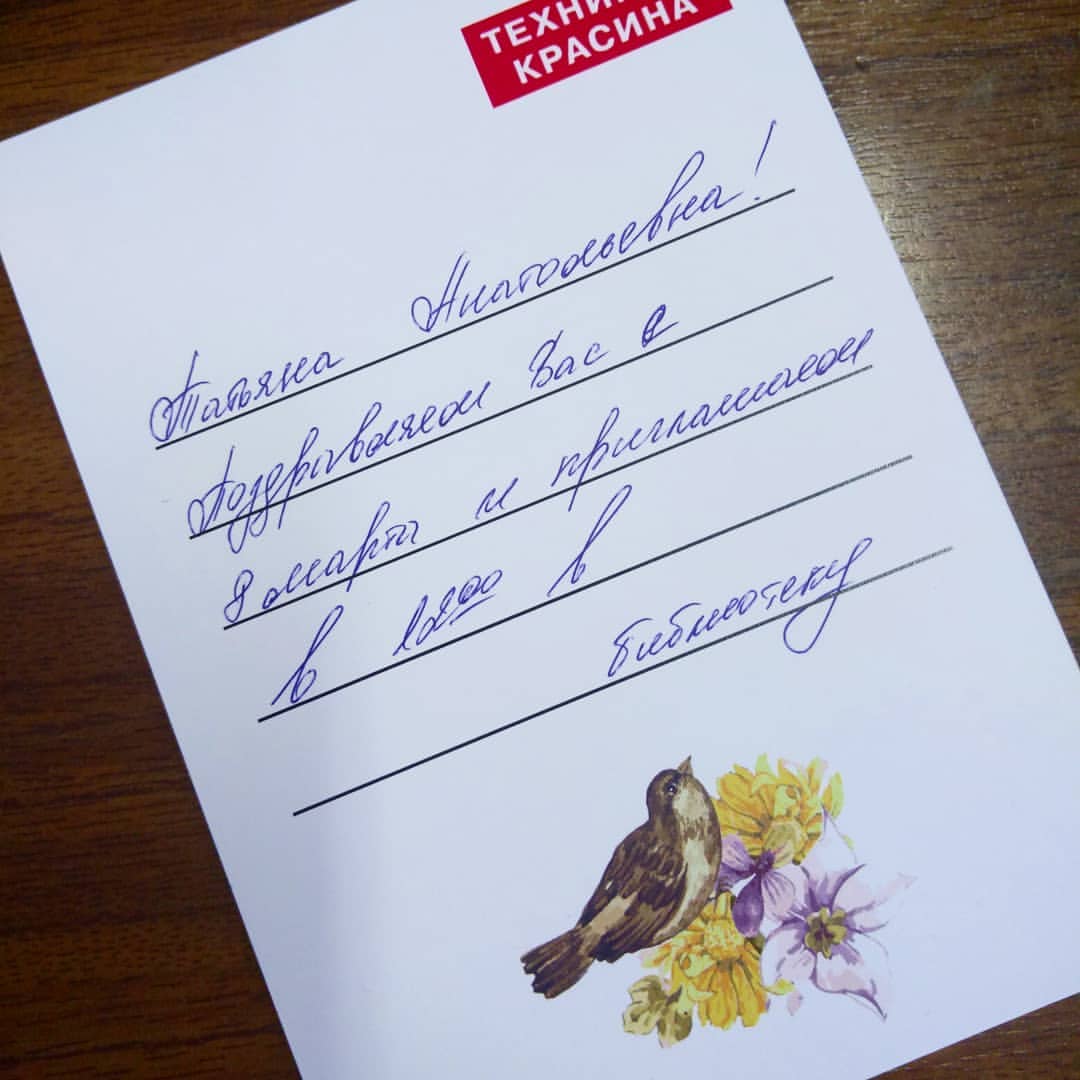 ТЕХНИ
КРАСИНА
Татьяна Анатольевна!
Поздравляем Вас с
8 марта и приглашаем
в 12 00 в
библиотеку